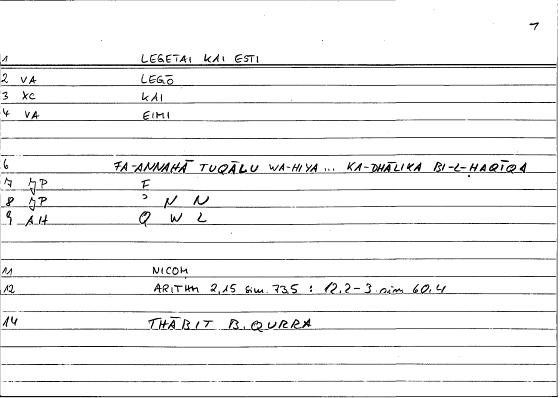 7
1 LEGETAI KAI ESTI
2 VA LEGŌ
3 XC KAI
4 VA EIMI
6 FA-ANNAHĀ TUQĀLU WA-HIYA ... KA-DHĀLIKA BI-L-HAQĪQA
7 JP F
8 JP ʾ N N
9 AH Q W L
11 NICOM
12 ARITHM 2,15 sim. 73.5 : 12.2-3 sim 60.4
14 THĀBIT B. QURRA